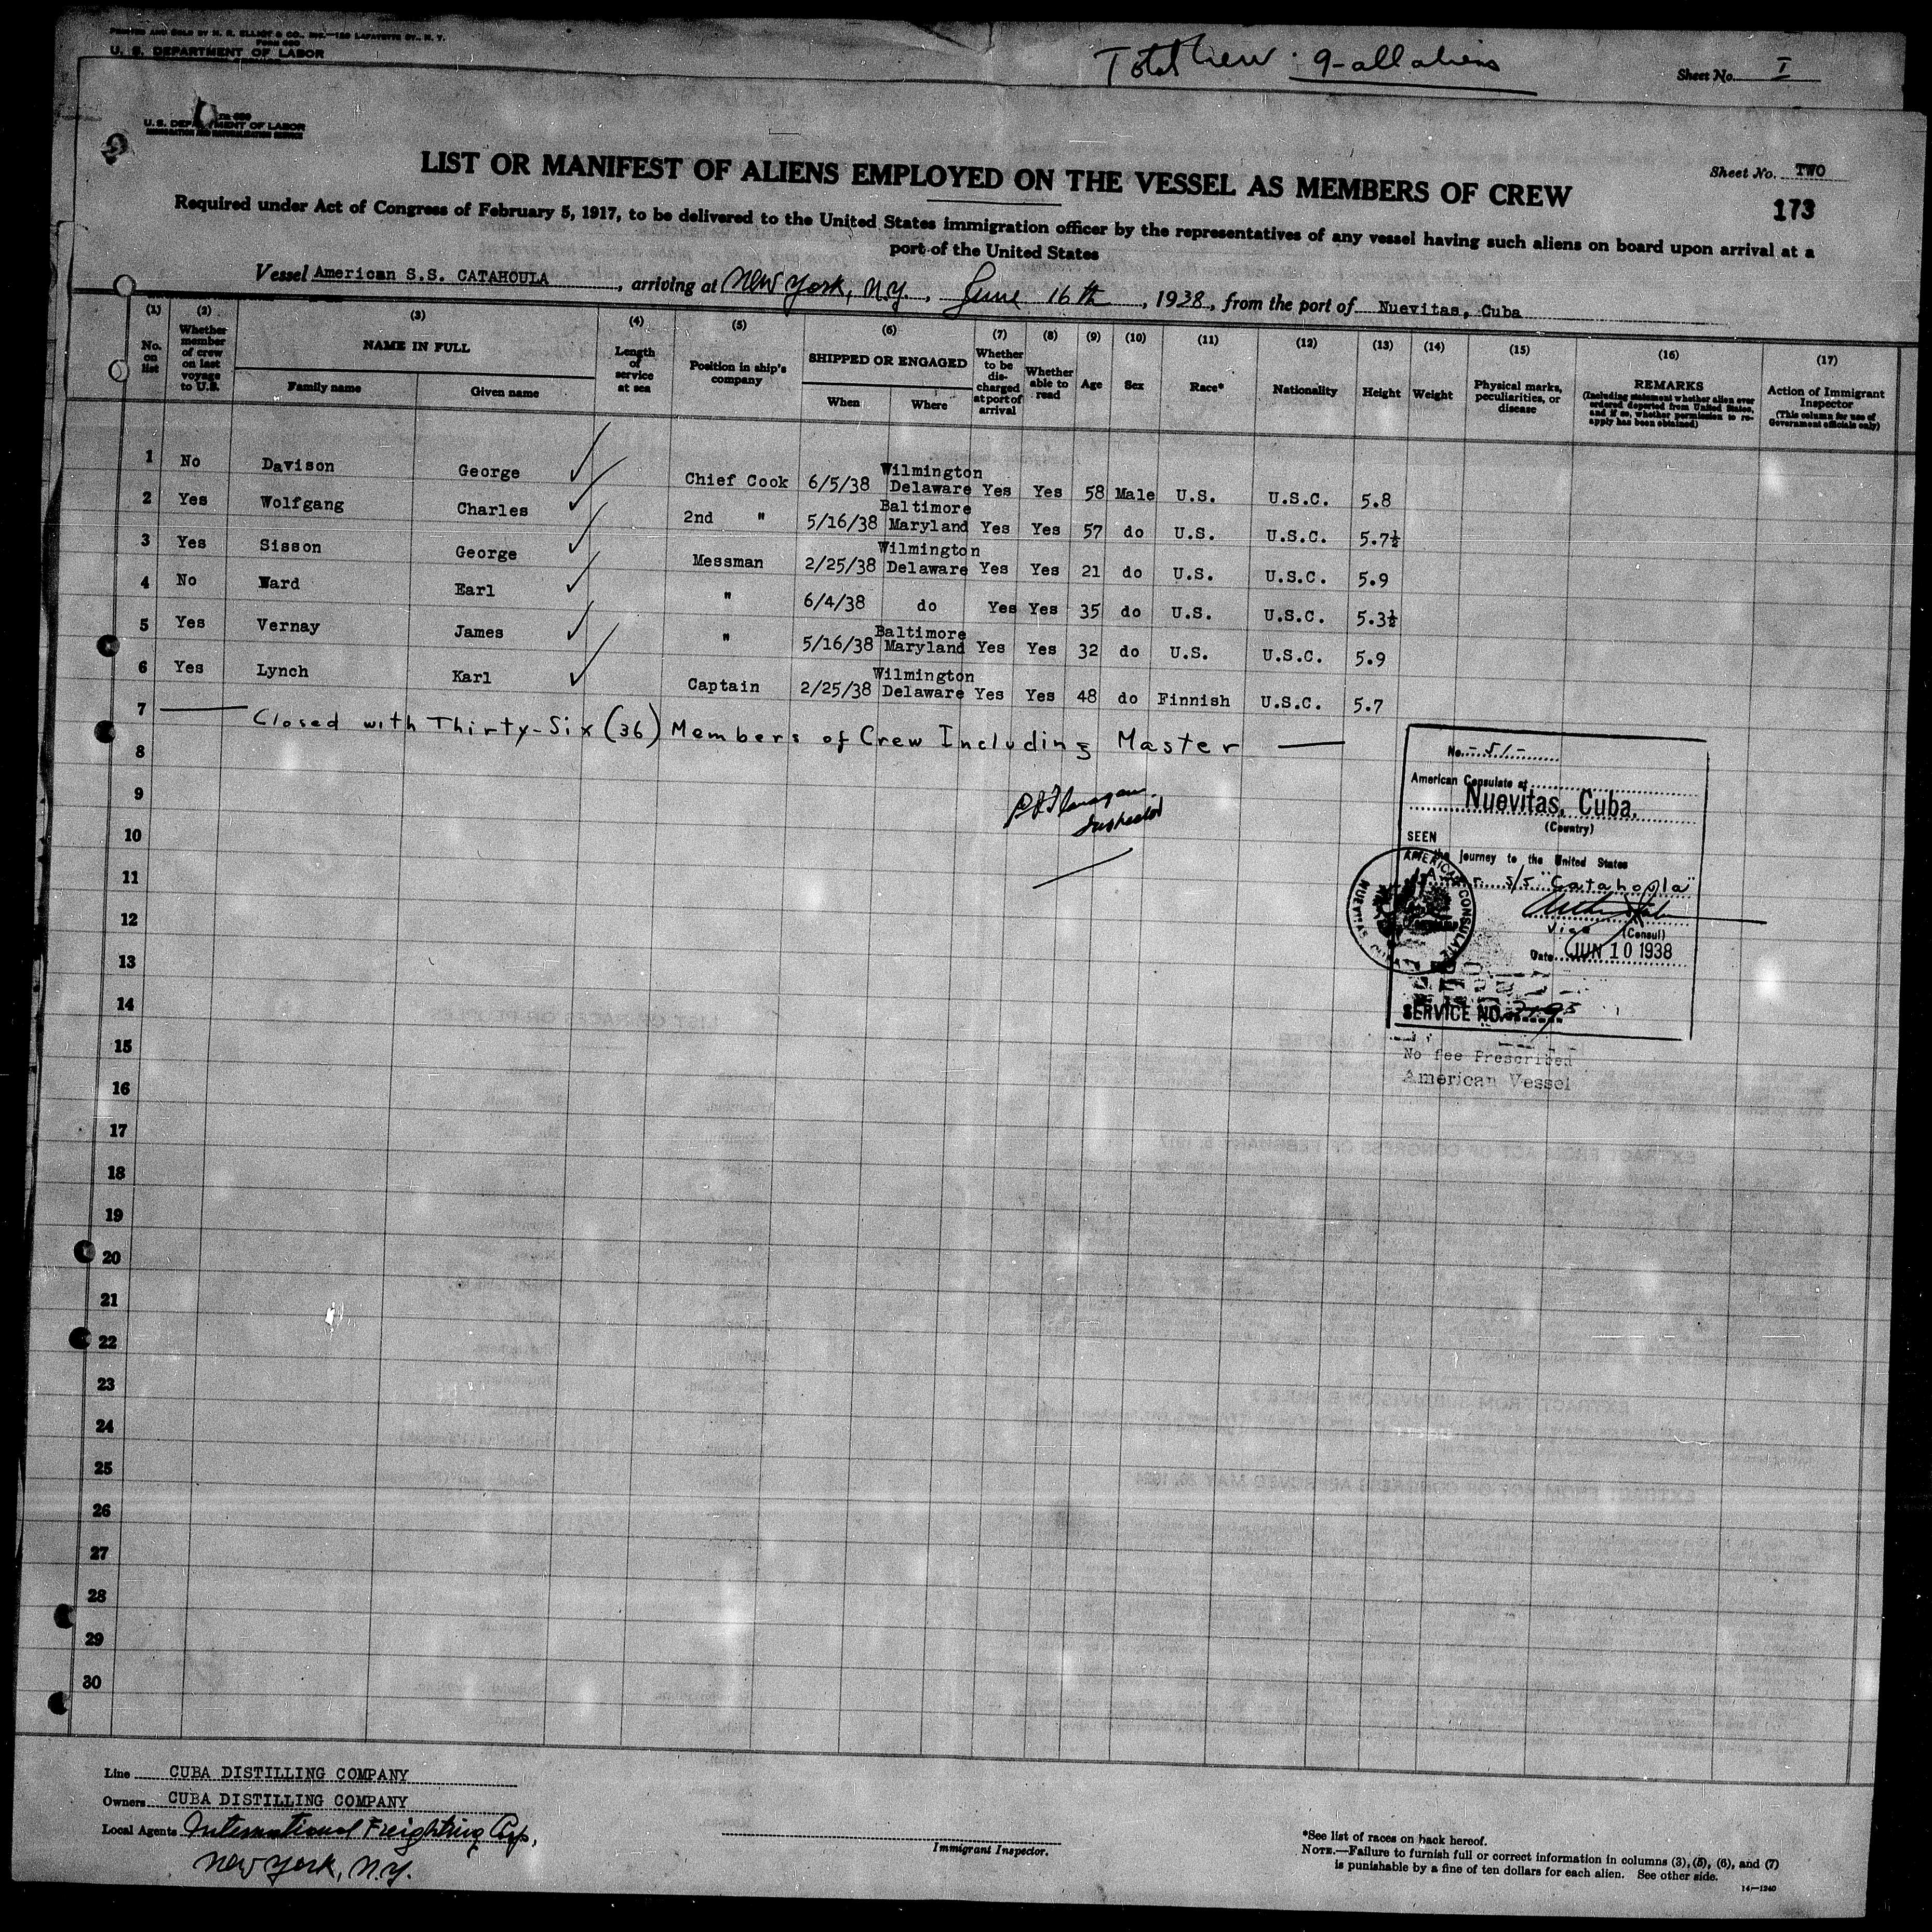 PRINTED AND SOLD BY H. R. ELLIOT & CO., INC.—120 LAFAYETTE ST., N. Y.
Form 680
U. S. DEPARTMENT OF LABOR
Total Crew: 9-all aliens
Sheet No. I
U. S. DEPARTMENT OF LABOR
IMMIGRATION AND NATURALIZATION SERVICE
Sheet No. TWO
LIST OR MANIFEST OF ALIENS EMPLOYED ON THE VESSEL AS MEMBERS OF CREW
173
Required under Act of Congress of February 5, 1917, to be delivered to the United States immigration officer by the representatives of any vessel having such aliens on board upon arrival at a
port of the United States
Vessel American S.S. CATAHOULA, arriving at New York, N.Y., June 16th, 1938, from the port of Nuevitas, Cuba
(1) No. on list
(2) Whether member of crew on last voyage to U.S.
(3) NAME IN FULL
Family name Given name
(4) Length of service at sea
(5) Position in ship's company
(6) SHIPPED OR ENGAGED
When Where
(7) Whether to be discharged at port of arrival
(8) Whether able to read
(9) Age
(10) Sex
(11) Race*
(12) Nationality
(13) Height
(14) Weight
(15) Physical marks, peculiarities, or disease
(16) REMARKS
(Including statement whether alien ever ordered deported from United States, and if so, whether permission to reapply has been obtained)
(17) Action of Immigrant Inspector
(This column for use of Government officials only)
1 No Davison George Chief Cook 6/5/38 Wilmington Delaware Yes Yes 58 Male U.S. U.S.C. 5.8
2 Yes Wolfgang Charles 2nd " 5/16/38 Baltimore Maryland Yes Yes 57 do U.S. U.S.C. 5.7½
3 Yes Sisson George Messman 2/25/38 Wilmington Delaware Yes Yes 21 do U.S. U.S.C. 5.9
4 No Ward Earl " 6/4/38 do Yes Yes 35 do U.S. U.S.C. 5.3½
5 Yes Vernay James " 5/16/38 Baltimore Maryland Yes Yes 32 do U.S. U.S.C. 5.9
6 Yes Lynch Karl Captain 2/25/38 Wilmington Delaware Yes Yes 48 do Finnish U.S.C. 5.7
7 Closed with Thirty-Six (36) Members of Crew Including Master
8
9
10
11
12
13
14
15
16
17
18
19
20
21
22
23
24
25
26
27
28
29
30
Inspector
No. -51-
American Consulate at
Nuevitas, Cuba.
(Country)
SEEN
the journey to the United States
s/s "Catahoula"
Vice (Consul)
Date JUN 10 1938
AMERICAN CONSULATE
NUEVITAS, CUBA
SERVICE NO.
No fee Prescribed
American Vessel
Line CUBA DISTILLING COMPANY
Owners CUBA DISTILLING COMPANY
Local Agents International Freighting Corp,
New York, N.Y.
Immigrant Inspector.
*See list of races on back hereof.
NOTE.—Failure to furnish full or correct information in columns (3), (5), (6), and (7)
is punishable by a fine of ten dollars for each alien. See other side.
14—1240